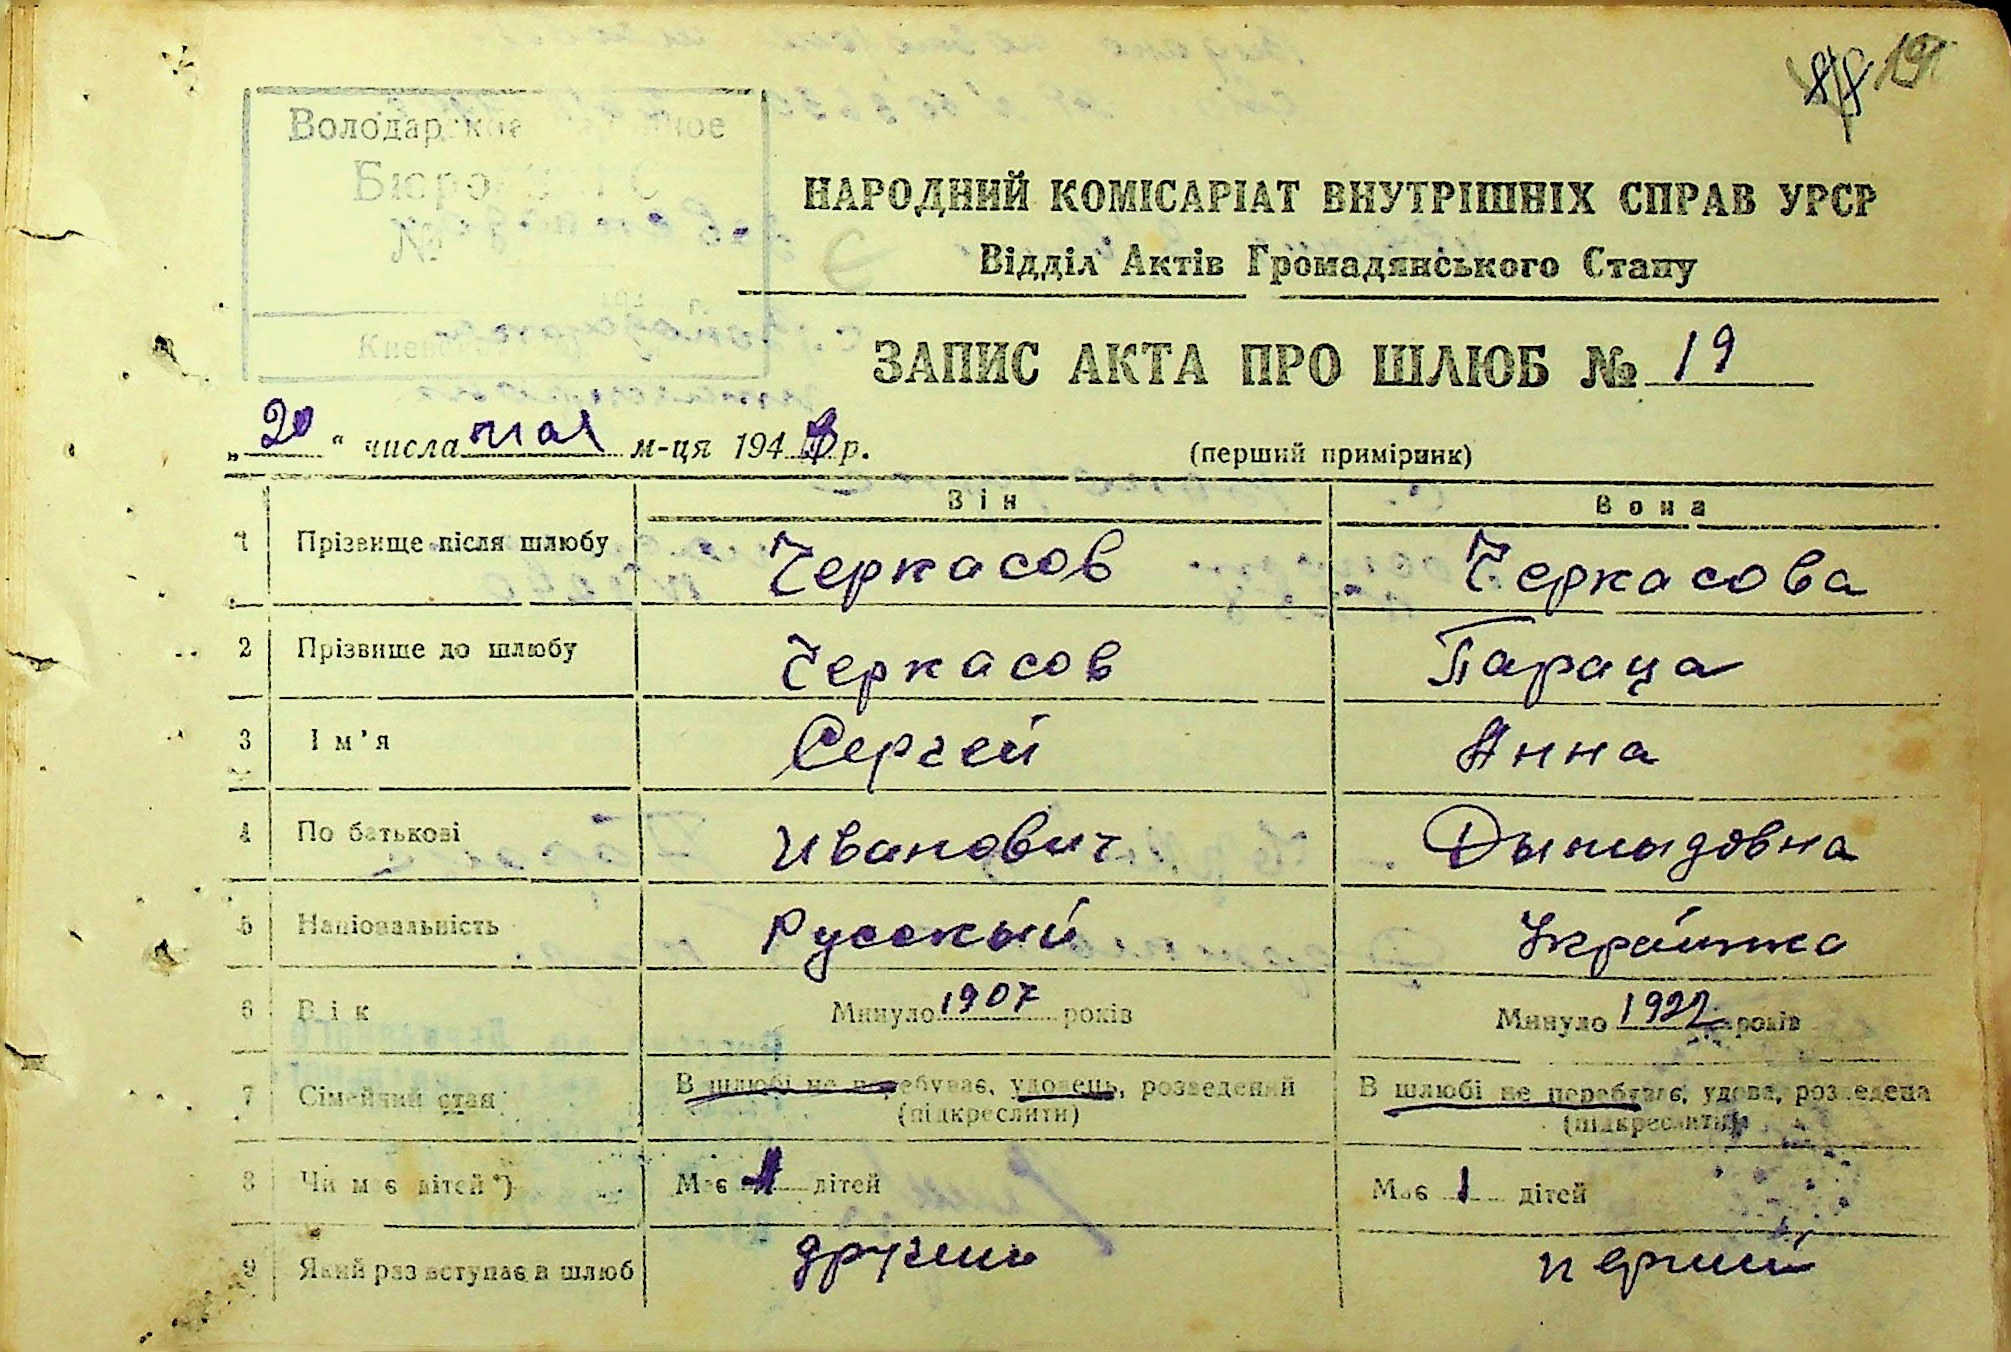 19
Володарское
Бюро
№
НАРОДНИЙ КОМІСАРІАТ ВНУТРІШНІХ СПРАВ УРСР
Відділ Актів Громадянського Стану
ЗАПИС АКТА ПРО ШЛЮБ № 19
„20“ числа мая м-ця 194 р.
(перший примірник)
Він Вона
1 Прізвище після шлюбу Черкасов Черкасова
2 Прізвище до шлюбу Черкасов Параца
3 Ім'я Сергей Анна
4 По батькові Иванович Дымыдовна
5 Національність Русскый Украінка
6 Вік Минуло 1907 років Минуло 1922 років
7 Сімейний стан В шлюбі не перебуває, удовець, розведений В шлюбі не перебуває, удова, розведена
(підкреслити) (підкреслити)
8 Чи має дітей *) Має 1 дітей Має 1 дітей
9 Який раз вступає в шлюб другий перший